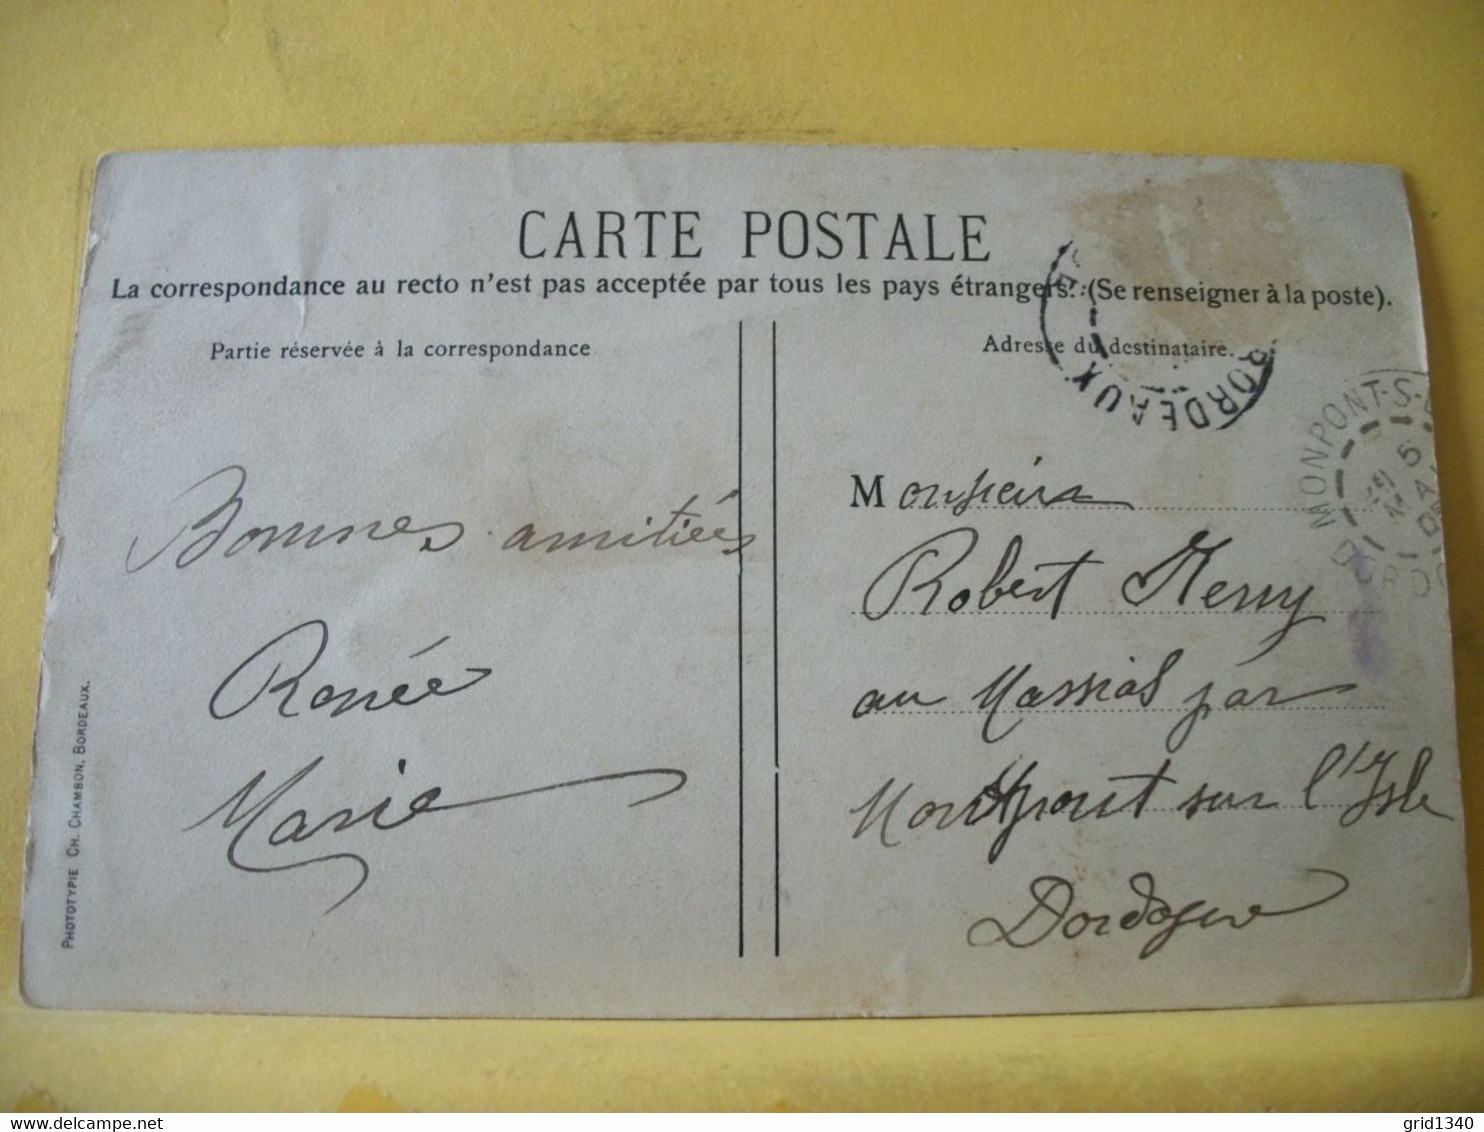 CARTE POSTALE
La correspondance au recto n'est pas acceptée par tous les pays étrangers. (Se renseigner à la poste).
Partie réservée à la correspondance
Adresse du destinataire.
BORDEAUX
MONPONT-S-
Bonnes amitiés
Renée
Marie
Monsieur
Robert
au Massias par
Montpont sur l'Isle
Dordogne
PHOTOTYPIE CH. CHAMBON, BORDEAUX.
© delcampe.net
grid1340